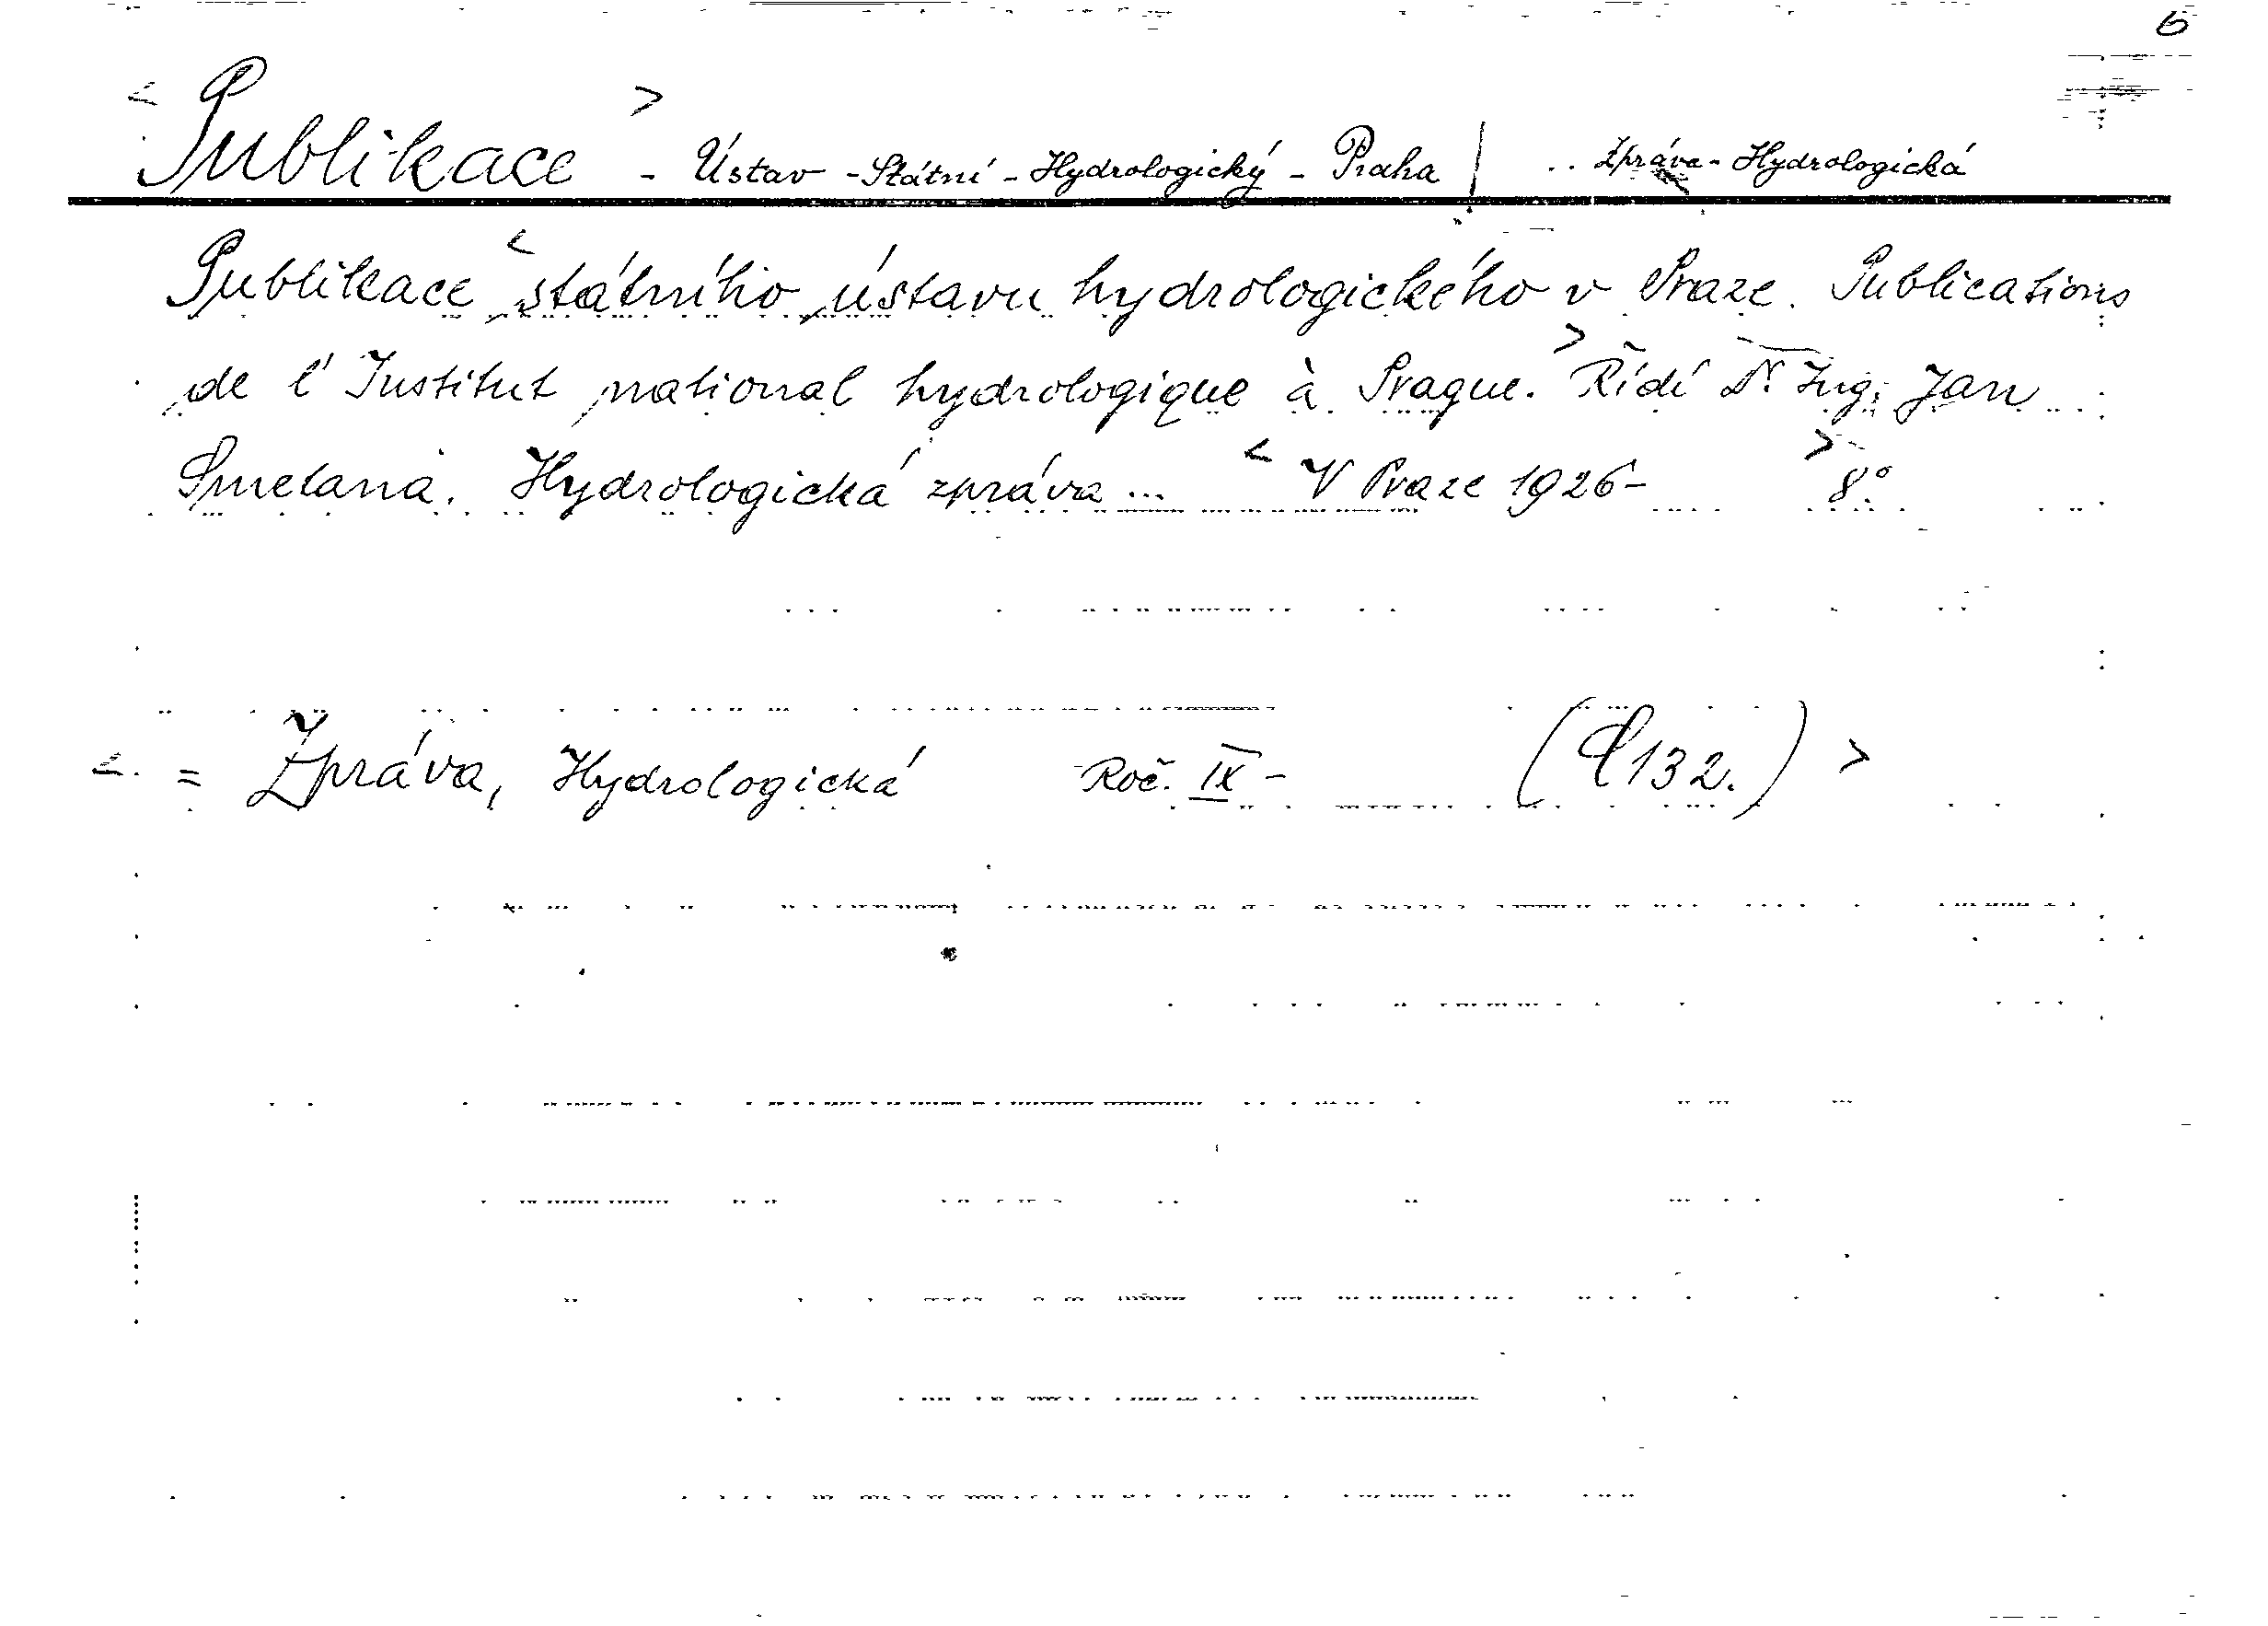 6
< Publikace > - Ústav - Státní - Hydrologický - Praha | .. Zpráva - Hydrologická
Publikace < státního ústavu hydrologického v Praze. Publications
de l'Institut national hydrologique à Prague. > Řídí Dr. Ing. Jan
Smetana. Hydrologická zpráva ... < V Praze 1926- > 8°.
< = Zpráva, Hydrologická Roč. IX - (P 132.) >